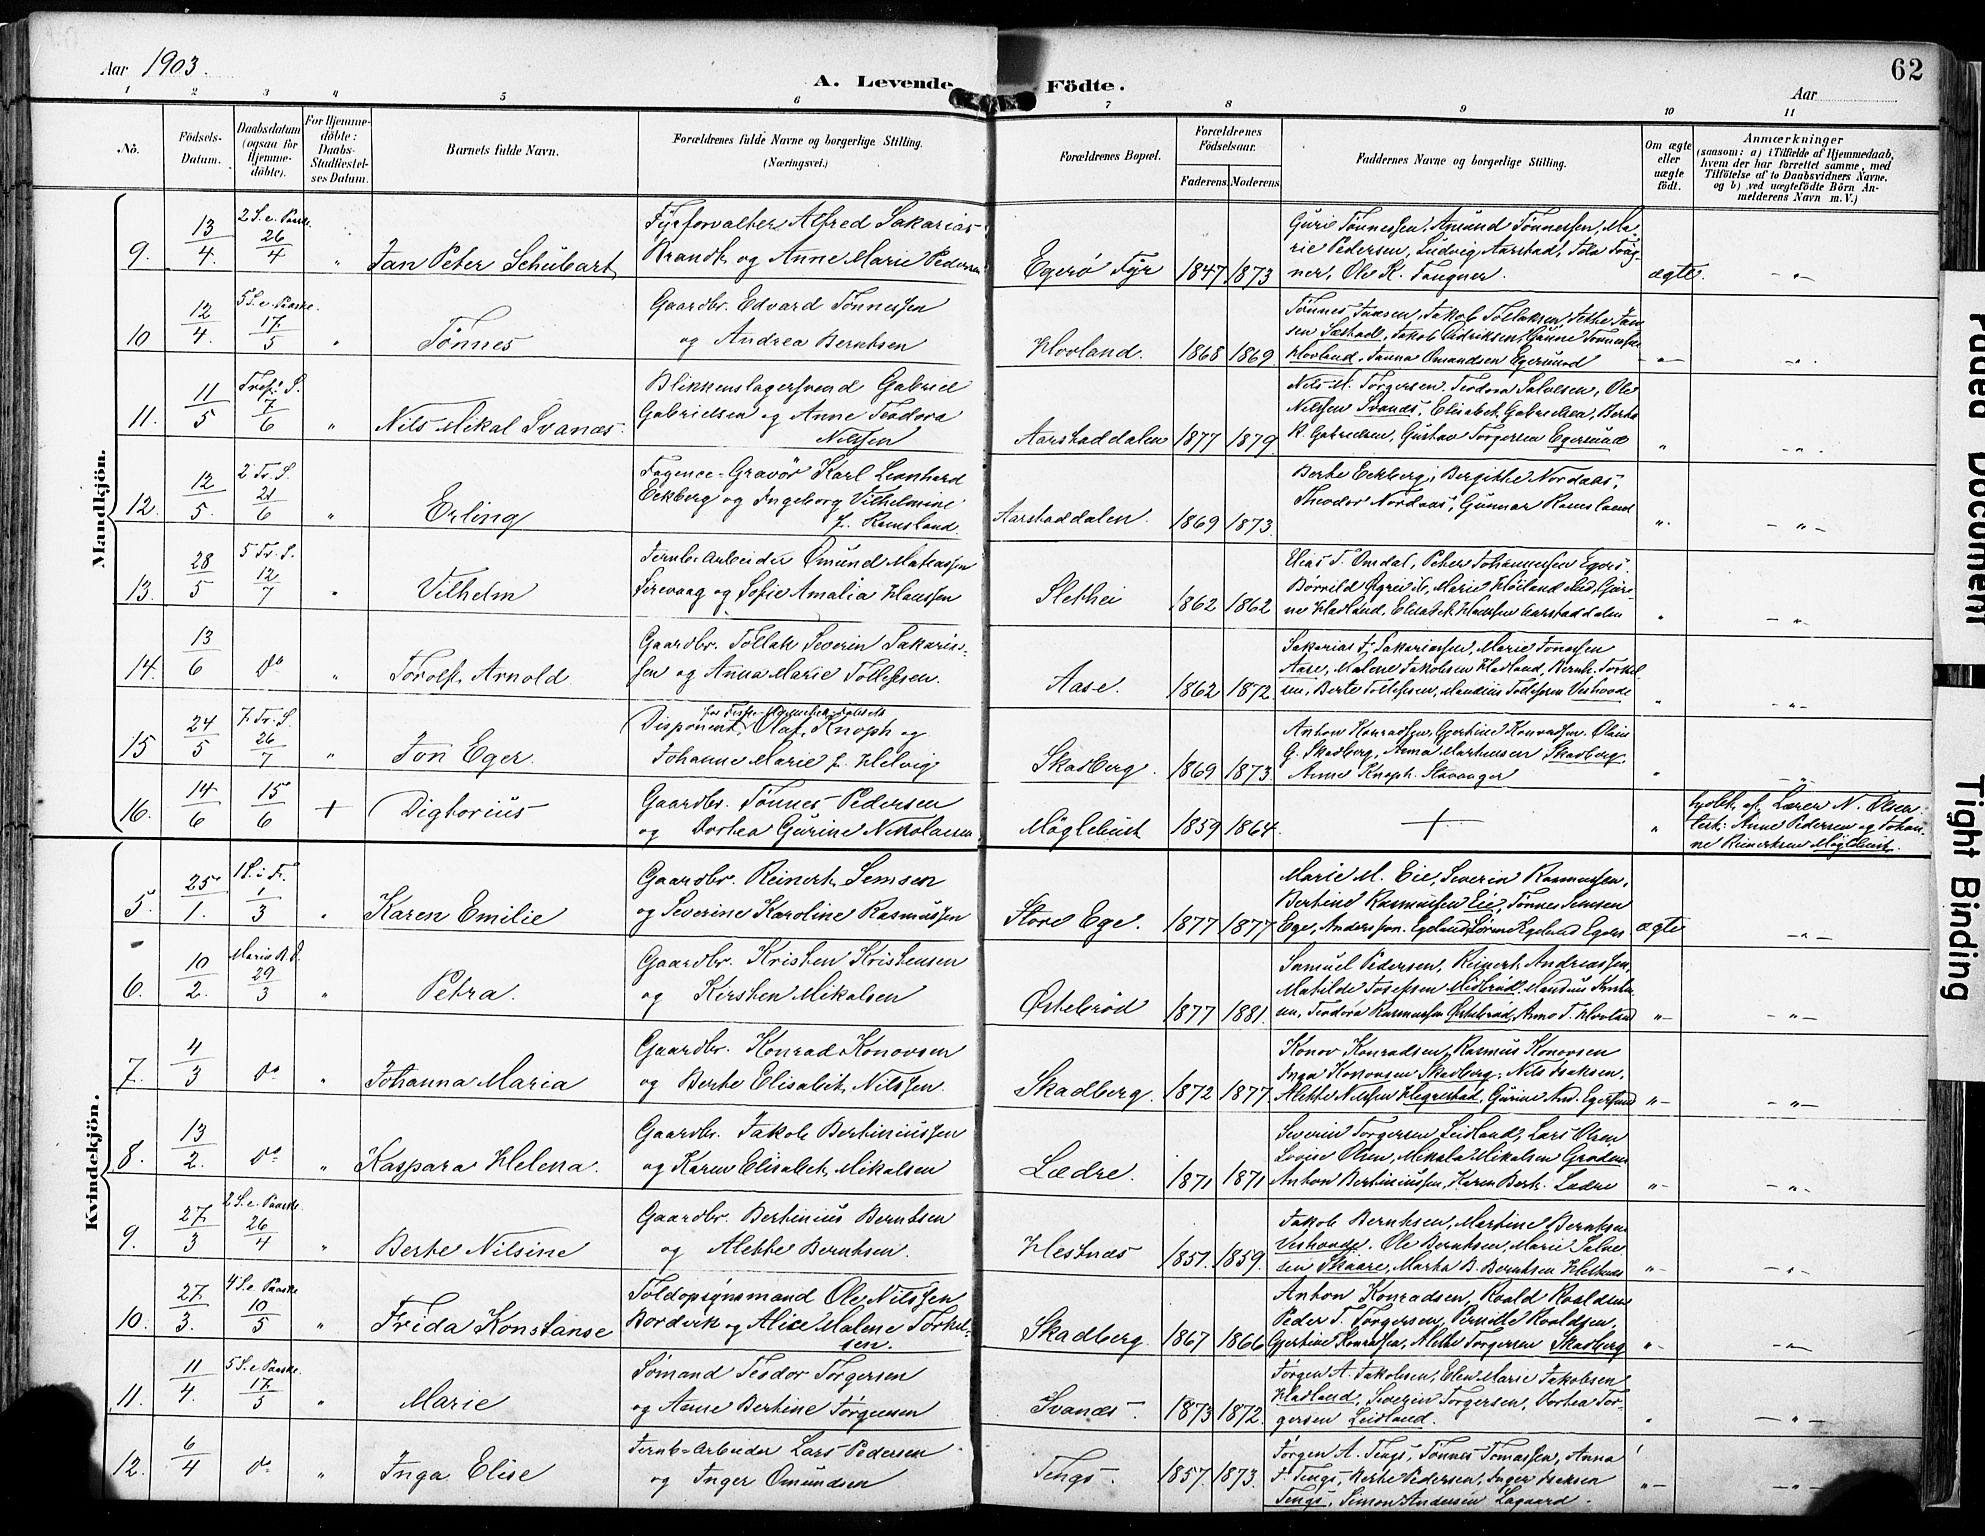 62
Aar 1903.
A. Levende Födte.
Aar
1 2 3 4 5 6 7 8 9 10 11
No.
Födsels-Datum.
Daabsdatum (ogsaa for Hjemme-döbte).
For Hjemme-döbte: Daabs-Stadfæstel-ses Datum.
Barnets fulde Navn.
Forældrenes fulde Navne og borgerlige Stilling.
(Næringsvei.)
Forældrenes Bopæl.
Forældrenes Födselsaar.
Faderens. Moderens.
Faddernes Navne og borgerlige Stilling.
Om ægte eller uægte födt.
Anmærkninger
(saasom: a) i Tilfælde af Hjemmedaab,
hvem der har forrettet samme, med
Tilföielse af to Daabsvidners Navne,
og b) ved uægtefödte Börn An-
melderens Navn m. V.)
Mandkjön.
9. 13/4 2 S. e. Paaske 26/4 " Jan Peter Schubart
Fyrforvalter Alfred Sakarias
Brandt og Anne Marie Pedersen
Egerø Fyr 1847 1873
Gurie Tønnessen, Amund Tønnessen, Ma-
rie Pedersen, Ludvig Aarstad,
ner, Ole K. Fangner. ægte. - " -
10 12/4 5 S. e. Paaske. 17/5 " Tønnes
Gaardbr. Edvard Tønnessen
og Andrea Berntsen
Hovland. 1868 1869
Tønnes Jansen, Jakob Tollaksen,
Hovland, Janna Omundsen Egersund -"- "
11. 11/5 Tref. S. 7/6 " Nils Mikal Svanæs.
Blikkenslagersvend Gabriel
Gabrielsen og Anne Teodora
Nilssen
Aarstaddalen 1877 1879
Nils M. Torgersen, Teodora Salvesen, Ole
Nilssen Svanæs, Elisabet Gabrielsen, Berta
K. Gabrielsen, Gustav Torgersen Egersund " - " -
12. 12/5. 2 Tr. S. 21/6 " Erling
Fayence-Gravør Karl Leonhard
Eckberg og Ingeborg Vilhelmine
f. Ramsland.
Aarstaddalen. 1869 1873.
Berte Eckberg, Bergitte Nordaas,
Theodor Nordaas, Gunnar Ramsland ". - " -
13. 28/5 5 Tr. S. 12/7 " Vilhelm
Jernb. Arbeider Omund Mateassen
Sirevaag og Sofie Amalia Hanssen
Slethei 1862 1862
Elias T. Omdal, Peter Johannessen Egers.
Marie Høiland
Hadland, Elisabet Hanssen Aarstaddalen " - " -
14. 13/6 do " Torolf Arnold.
Gaardbr. Tollak Severin Sakarias-
sen og Anna Marie Tollefsen.
Aase. 1862 1872.
Sakarias T. Sakariassen, Marie Jonassen
Aase, Malene Jakobsen Hadland, Bernt Torkel-
sen, Berte Tollefsen, Mandius Tollefsen Veshovde " - " -
15 24/5 7. Tr. S. 26/7 " Jon Eger.
Disponent Olaf Knoph og
Johanne Marie f. Helvig
Skadberg. 1869 1873.
Anton Konradsen, Gjertine Konradsen, Olaus
G. Skadberg, Anna Martinsen Skadberg,
Anne Knoph. Stavanger " - " -
16. 14/6 15/6 + Digtorius
Gaardbr. Tønnes Pedersen
og Dortea Gurine Nikolaisen
Møglebust 1859 1864.
+ "
hjdbt. af Lærer N. Olsen
test: Anne Pedersen og Johan-
ne Reinertsen Møglebust.
Kvindekjön.
5. 25/1. 1 S. i F. 1/3 " Karen Emilie
Gaardbr. Reinert Semsen
og Severine Karoline Rasmussen
Store Ege. 1877 1877
Marie M. Eie, Severin Rasmussen,
Bertine Rasmussen Eie, Tønnes Semsen
Ege, Anderssen. Egeland, Egers ægte - " -
6. 10/2. Maria B. D. 29/3 " Petra.
Gaardbr. Kristen Kristensen
og Kirsten Mikalsen
Østebrød 1877 1881.
Samuel Pedersen, Reinert Andreassen,
Matilde Josefsen Midbrød,
Teodora Rasmussen Østebrød, Anna T. Hovland " - - " -
7. 4/3 do " Johanna Maria
Gaardbr. Konrad Konovsen
og Berte Elisabet Nilssen.
Skadberg. 1872 1877.
Konov Konradsen, Rasmus Konovsen
Inga Konovsen Skadberg, Nils Isaksen,
Alette Nilssen Hegrestad, Gurine And. Egersund " - - " -
8. 13/2. do " Kaspara Helena.
Gaardbr. Jakob Bertiniussen
og Karen Elisabet Mikalsen
Lædre. 1871 1871
Severin Torgersen Leidland, Lars Olsen
Lovise Olsen, Mikala Mikalsen Grødem
Anton Bertiniussen, Karen Bert. Lædre " - - " -
9. 27/3 2 S. e. Paaske. 26/4 " Berte Nilsine
Gaardbr. Bertinius Berntsen
og Alette Berntsen.
Hestnæs 1851. 1859.
Jakob Berntsen, Martine Berntsen
Veshovde. Ole Berntsen, Marie Salve-
sen Skaare, Marta B. Berntsen Hestnæs " - - " -
10. 27/3. 4 S. e. Paaske 10/5 " Frida Konstanse
Toldopsynsmand Ole Nilssen
Bordvik og Alice Malene Torkel-
sen.
Skadberg. 1867 1866
Anton Konradsen, Roald Roaldsen
Peder T. Torgersen, Pernille Roaldsen,
Gjertine Konradsen, Alette Torgersen Skadberg " - - " -
11. 11/4. 5 S. e. Paaske 17/5 " Marie
Sømand Teodor Torgersen
og Anne Bertine Jørgensen
Svanæs. 1873 1872.
Jørgen A. Jakobsen, Elen Marie Jakobsen
Hadland, Severin Torgersen, Dortea Tor-
gersen Leidland. " - " -
12. 6/4 do " Inga Elise
Jernb-Arbeider Lars Pedersen
og Inger Omundsen
Tengs. 1857. 1873.
Jørgen A. Tengs, Tønnes Tomassen, Anna
T. Tengs, Berte Pedersen, Inger Isaksen
Tengs, Simon Andersen Lagaard. " - - " -
Faded Document
Tight Binding